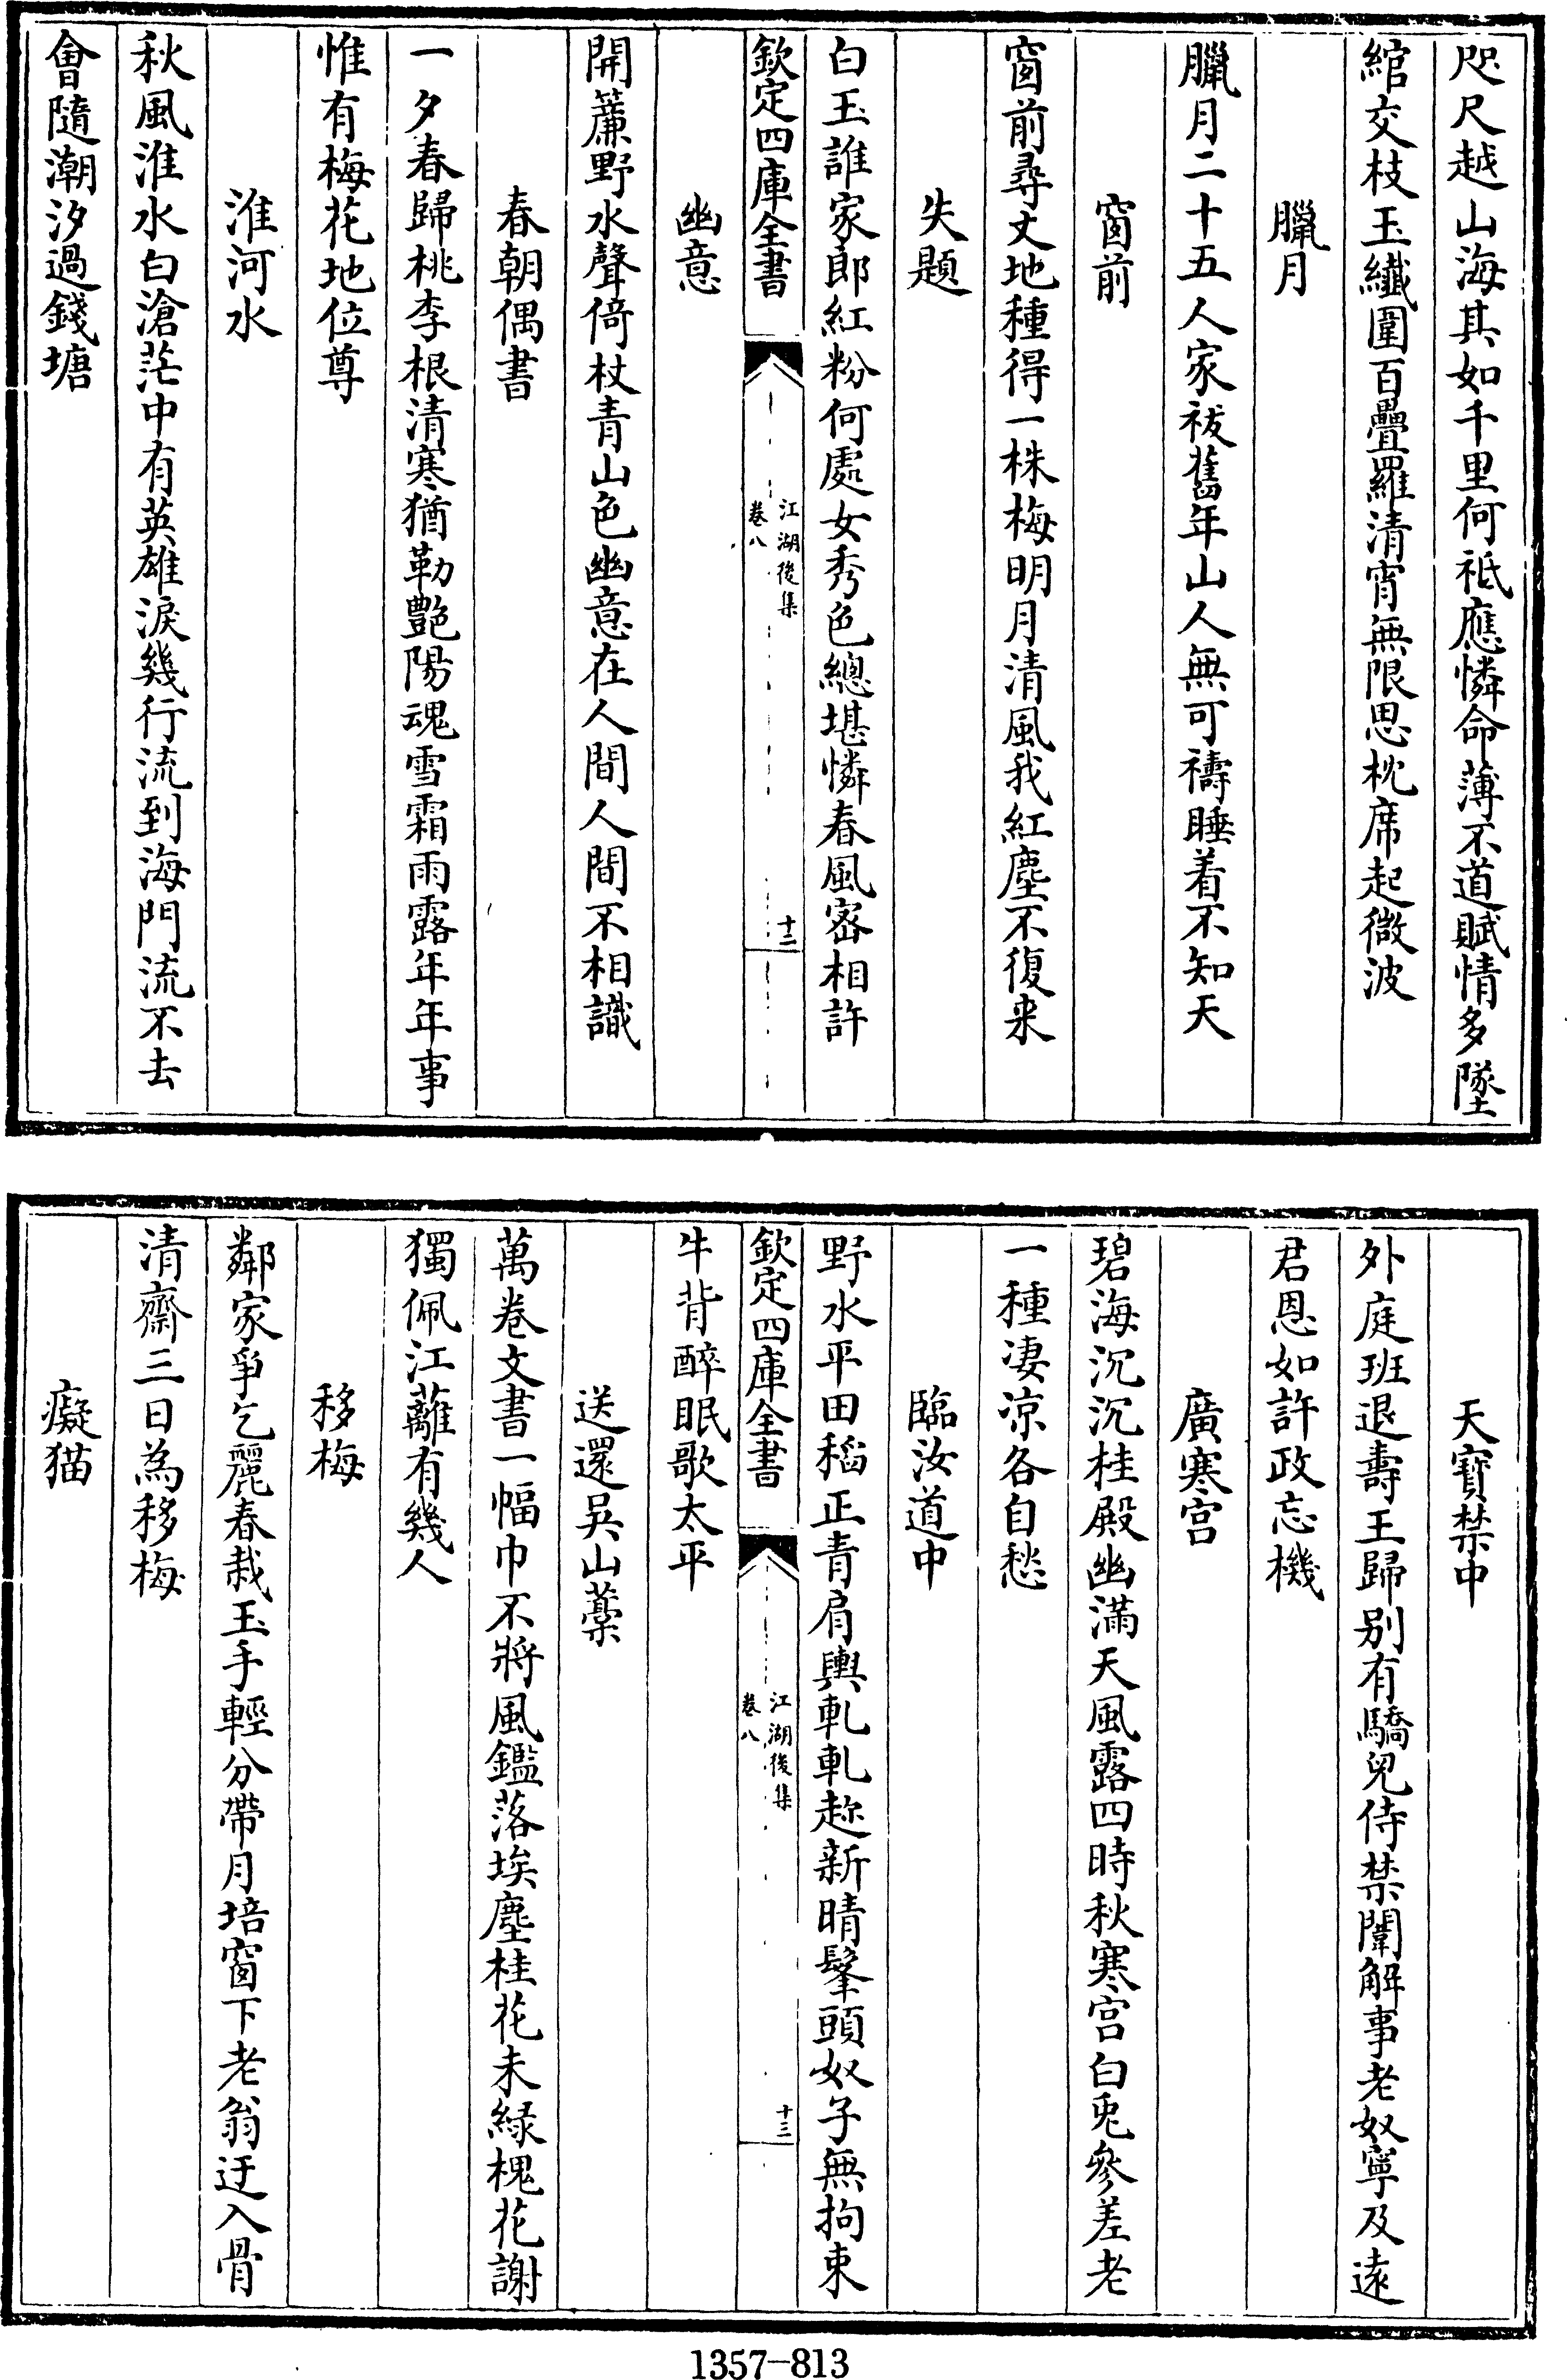 咫尺越山海其如千里何秖應憐命薄不道賦情多墜
綰交枝玉纖圍百疊羅清宵無限思枕席起微波
臘月
臘月二十五人家祓舊年山人無可禱睡着不知天
窗前
窗前尋丈地種得一株梅明月清風我紅塵不復来
失題
白玉誰家郎紅粉何處女秀色總堪憐春風宻相許
欽定四庫全書
江湖後集
卷八
十二
幽意
開簾野水聲倚杖青山色幽意在人間人間不相識
春朝偶書
一夕春歸桃李根清寒猶勒艶陽魂雪霜雨露年年事
惟有梅花地位尊
淮河水
秋風淮水白滄茫中有英雄淚幾行流到海門流不去
會隨潮汐過錢塘
天寶禁中
外庭班退壽王歸别有驕兒侍禁闈解事老奴寧及逺
君恩如許政忘機
廣寒宫
碧海沉沉桂殿幽滿天風露四時秋寒宫白兎參差老
一種凄凉各自愁
臨汝道中
野水平田稻正青肩輿軋軋趂新晴髼頭奴子無拘束
欽定四庫全書
江湖後集
卷八
十三
牛背醉眠歌太平
送還吳山藁
萬卷文書一幅巾不將風鑑落埃塵桂花未緑槐花謝
獨佩江蘺有幾人
移梅
鄰家爭乞麗春栽玉手輕分帶月培窗下老翁迂入骨
清齋三日為移梅
癡猫
1357-813